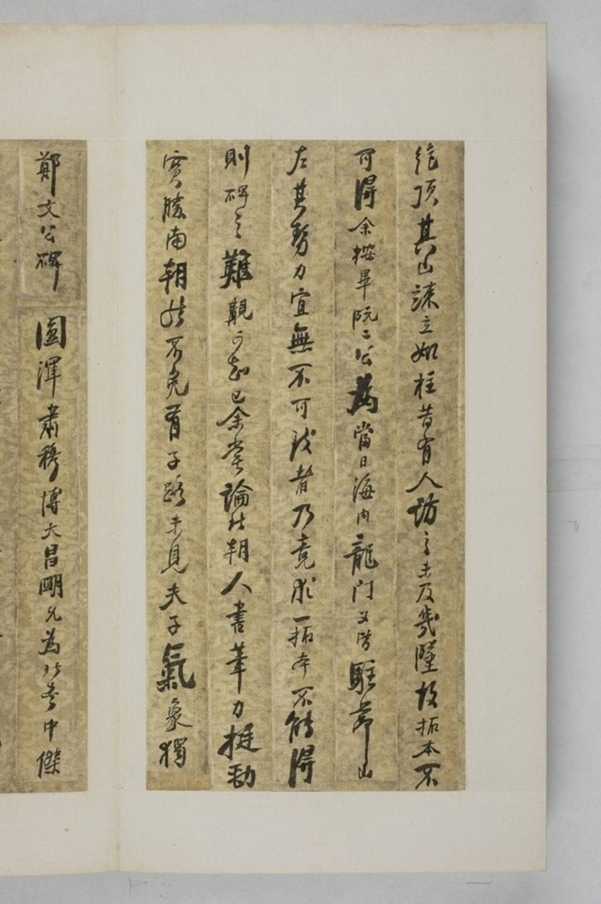 絶頂其山竦立如柱昔有人訪之未及幾墮故拓本不
可得余按畢阮二公為當日海內龍門又皆駐節山
左其勢力宜無不可致者乃竟求一拓本不能得
則碑之難覯可知已余嘗論北朝人書筆力挺勁
實勝南朝然不免有子路未見夫子氣象獨
鄭文公碑圓渾肅穆博大昌明允為北書中傑